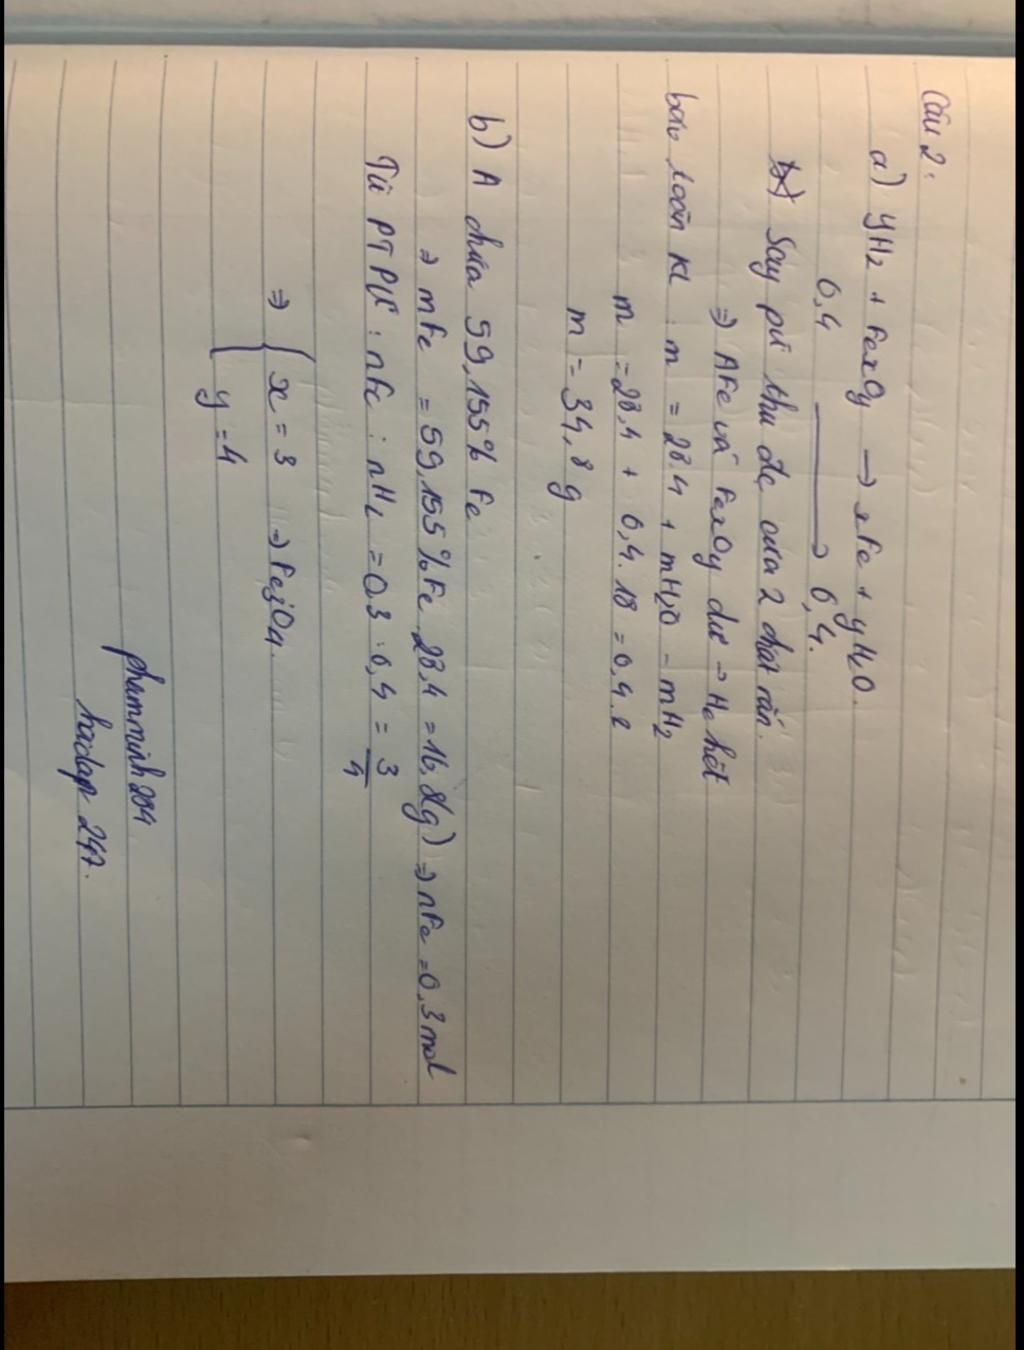 Câu 2:
a) yH2 + FexOy → xFe + yH2O.
0,4 → 0,4.
b) Sau pứ thu đc chứa 2 chất rắn.
⇒ A Fe và FexOy dư → H2 hết
bảo toàn KL : m = 28.4 + mH2O - mH2
m = 28,4 + 0,4.18 = 0,4.2
m = 34,8 g
b) A chứa 59,155% Fe
⇒ mFe = 59,155%Fe.28,4 = 16,8(g) ⇒ nFe = 0,3 mol
Từ PTPứ : nFe : nH2 = 0,3 : 0,4 = 3/4
⇒ { x = 3 ⇒ Fe3O4.
y = 4
phamminh284
hoidap 247.